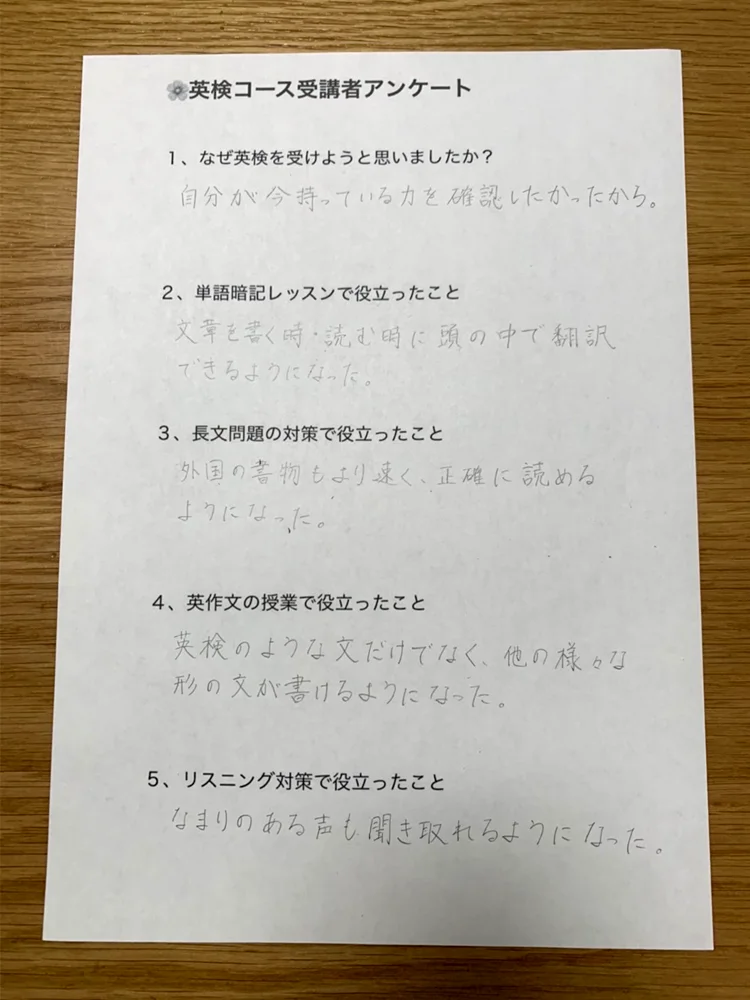 英検コース受講者アンケート
1、なぜ英検を受けようと思いましたか？
自分が今持っている力を確認したかったから。
2、単語暗記レッスンで役立ったこと
文章を書く時・読む時に頭の中で翻訳
できるようになった。
3、長文問題の対策で役立ったこと
外国の書物もより速く、正確に読める
ようになった。
4、英作文の授業で役立ったこと
英検のような文だけでなく、他の様々な
形の文が書けるようになった。
5、リスニング対策で役立ったこと
なまりのある声も聞き取れるようになった。